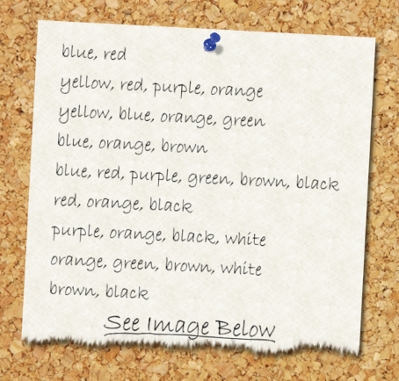 blue, red
yellow, red, purple, orange
yellow, blue, orange, green
blue, orange, brown
blue, red, purple, green, brown, black
red, orange, black
purple, orange, black, white
orange, green, brown, white
brown, black
See Image Below